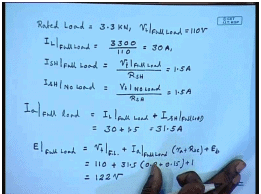 Rated Load = 3.3 KW, Vt|Full Load = 110V
IL|Full Load = 3300/110 = 30A,
ISH|Full Load = Vt|Full Load/RSH = 1.5A
ISH|No Load = Vt|No Load/RSH = 1.5A
Ia|Full Load = IL|Full Load + ISH|Full Load
= 30 + 1.5 = 31.5A
E|Full Load = Vt|F.L. + Ia|Full Load (ra + Rse) + Eb
= 110 + 31.5 (0.2 + 0.15) + 1
= 122V